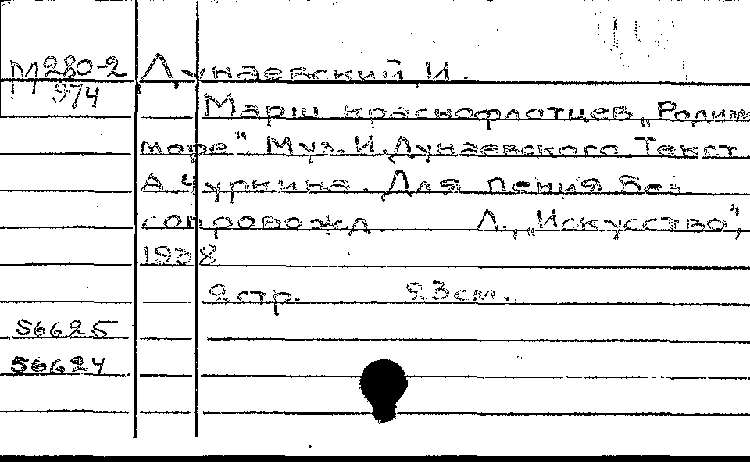 М280-2 Дунаевский, И.
974
Марш краснофлотцев "Родим
море". Муз. И. Дунаевского Текст
А. Чуркина. Для пения без
сопровожд. Л., "Искусство",
1938
2 стр. 23 см.
56625
56624